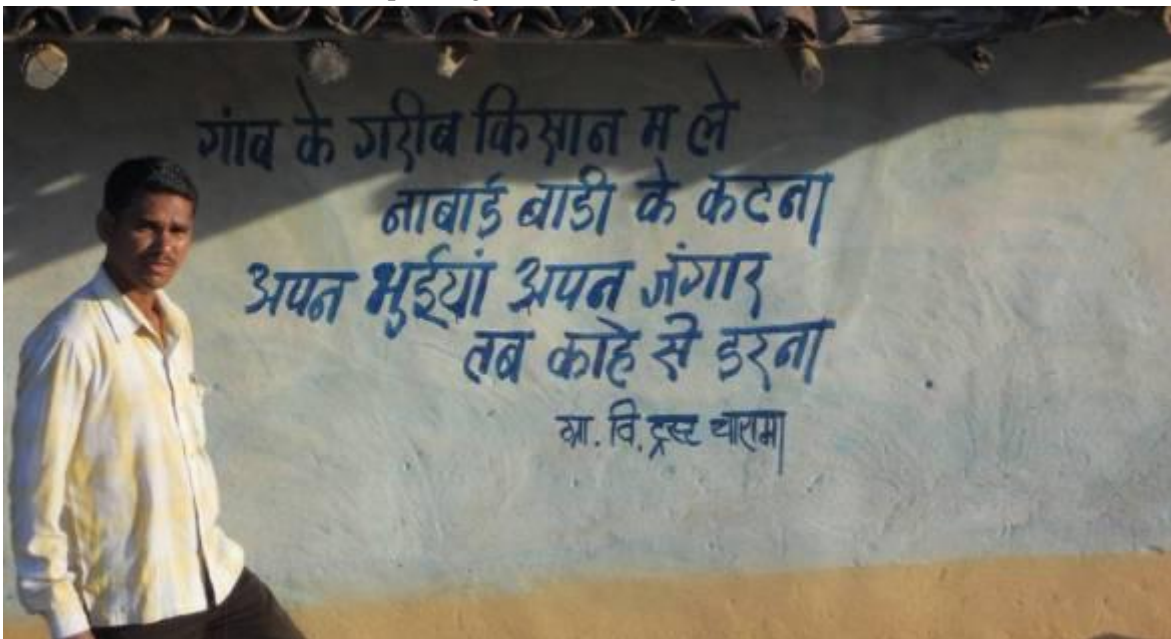 गांव के गरीब किसान म ले
नाबार्ड बाडी के कटना
अपन भुईयां अपन जंगार
तब काहे से डरना
ग्रा. वि. ट्रस्ट चारामा